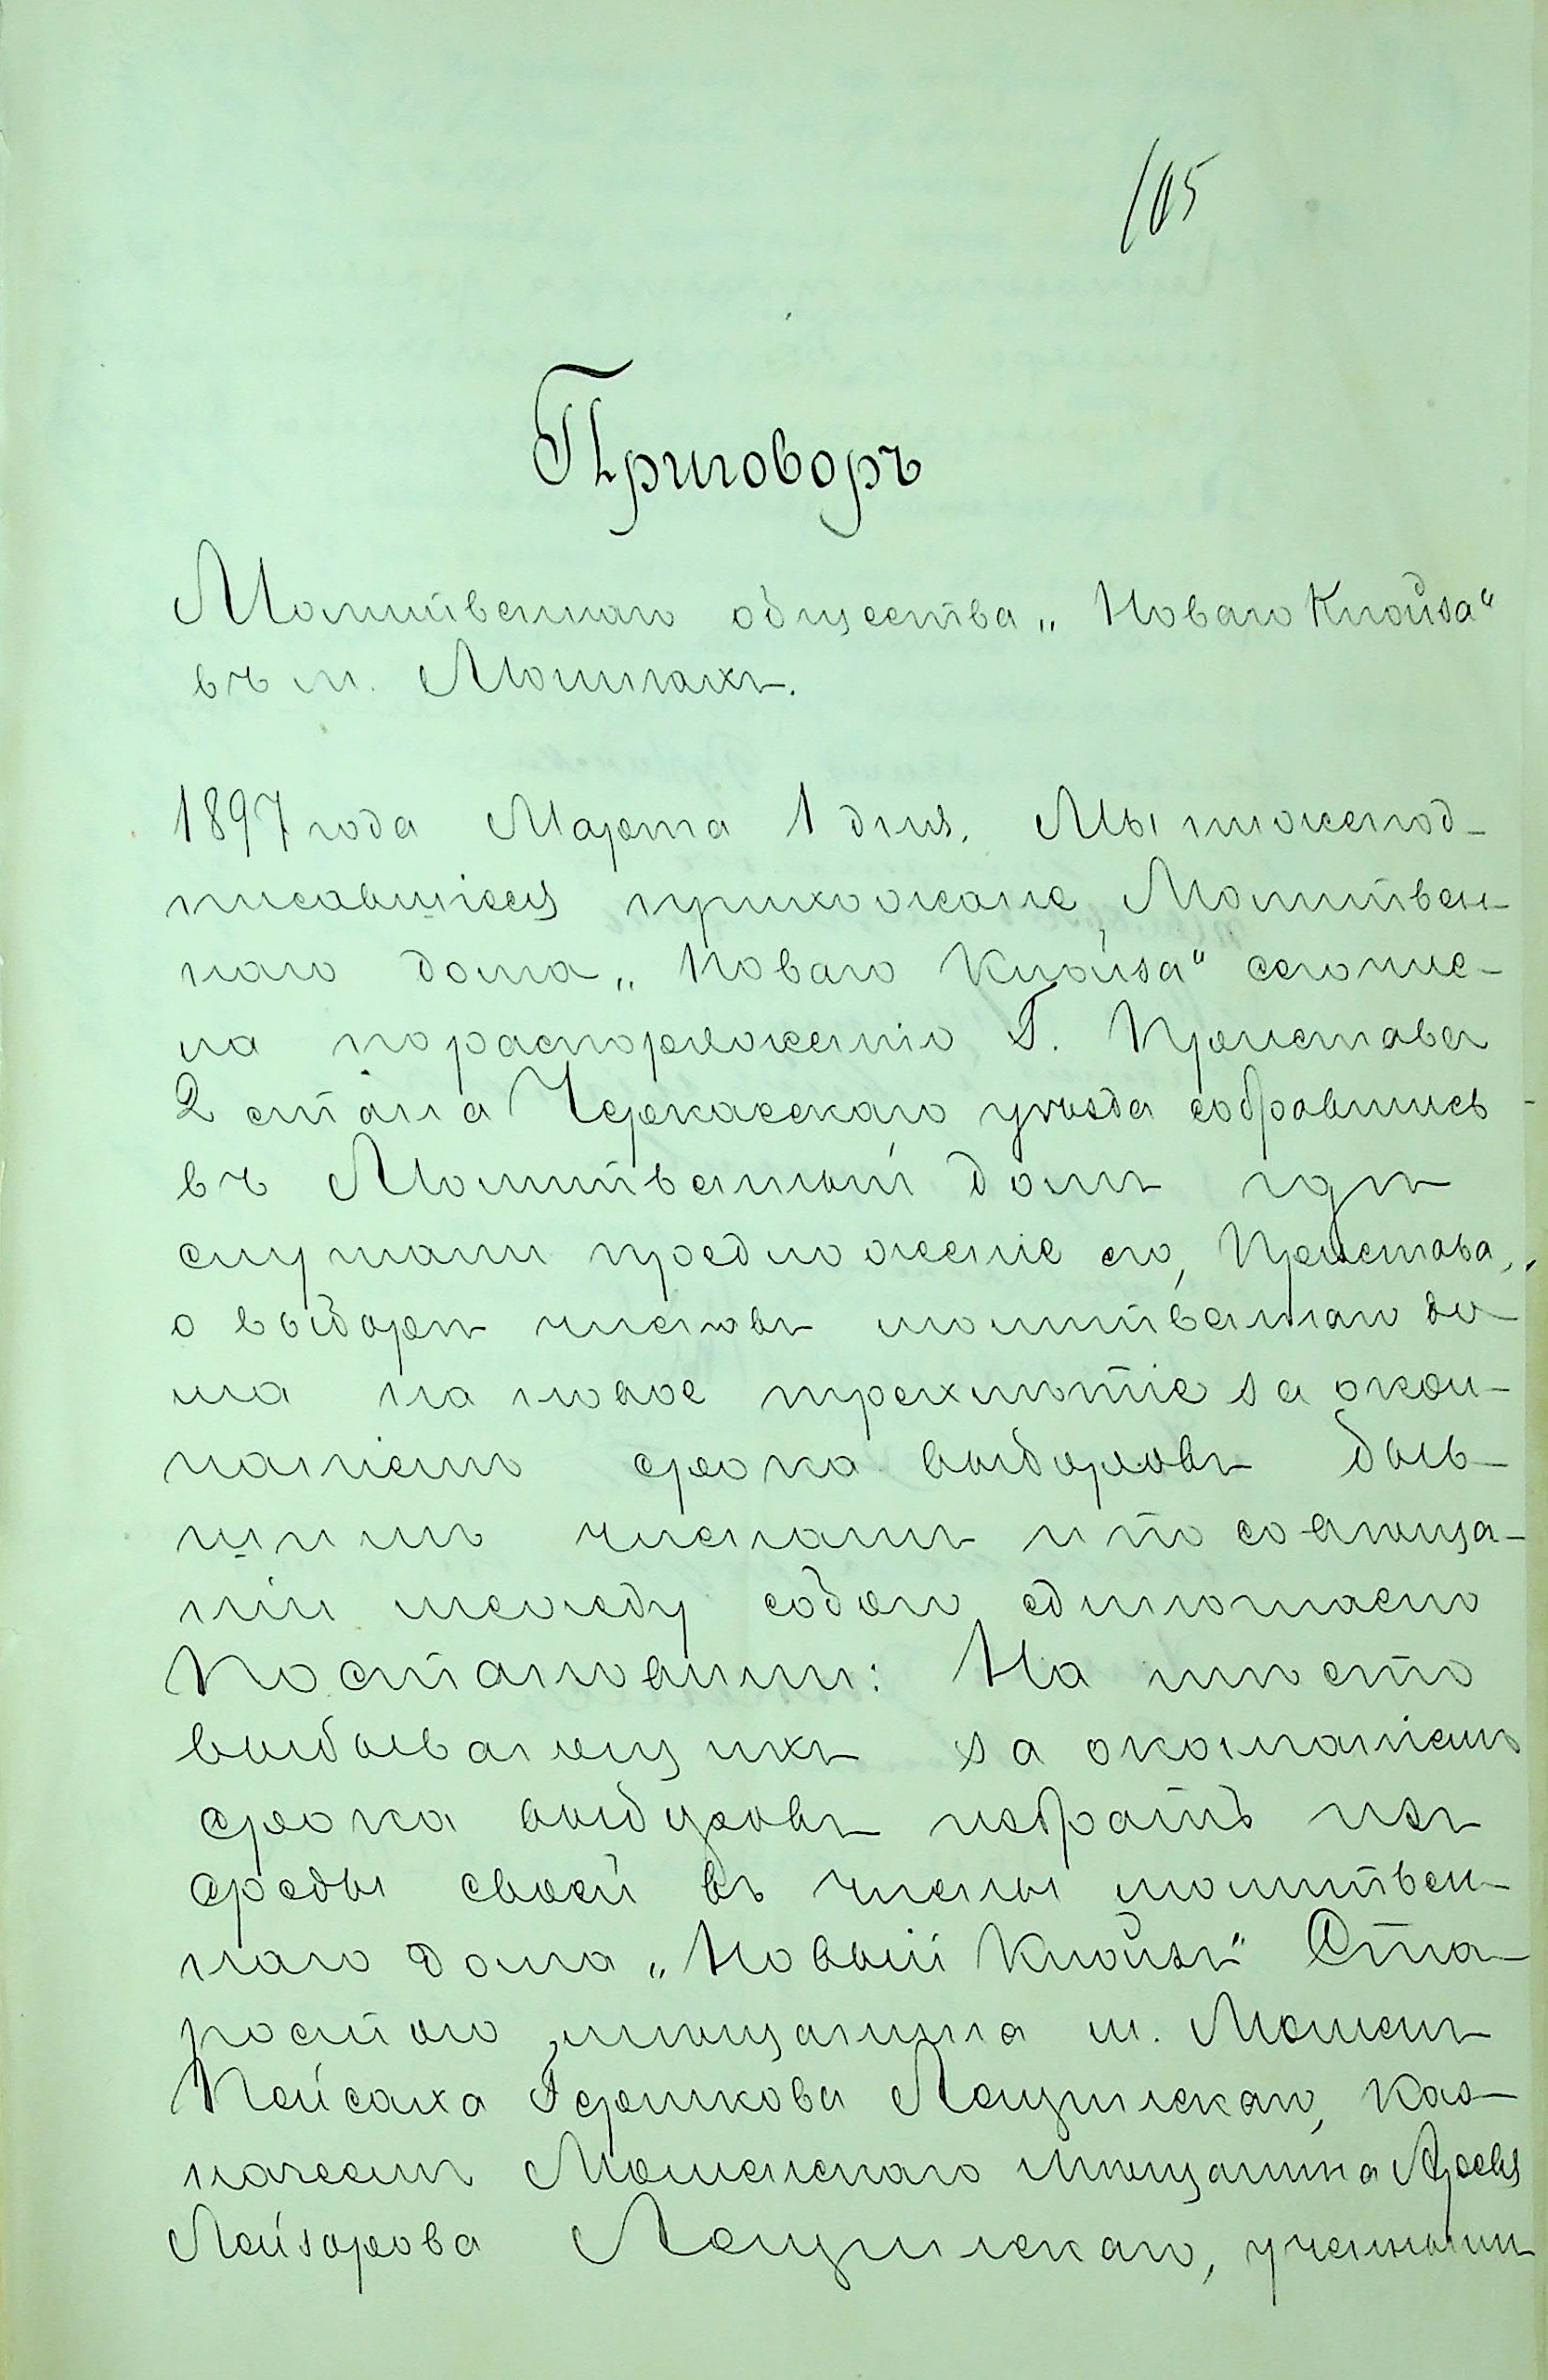 105
Приговоръ
Молитвеннаго общества „Новаго Клойза“
въ м. Мошнахъ.
1897 года Марта 1 дня. Мы нижепод-
писавшіеся прихожане Молитвен-
наго дома „Новаго Клойза“ сего чис-
ла по распоряженію Г. Пристава
2 стана Черкасскаго уѣзда собравшись
въ Молитвенный домъ гдѣ
слушали предложеніе его, Пристава,
о выборѣ членовъ молитвеннаго до
ма на новое трехлѣтіе за окон-
чаніемъ срока выборовъ быв-
шимъ членамъ и по совѣща-
ніи между собою единогласно
Постановили: На мѣсто
выбывающихъ за окончаніемъ
срока выборовъ избрать изъ
среды своей въ члены молитвен-
наго дома „Новый Клойзъ“ Ста-
ростою мѣщанина м. Мошенъ
Пейсаха Гершкова Лещинскаго, Каз-
начеемъ Мошенскаго мѣщанина
Лейзорова Лещинскаго, ученымъ